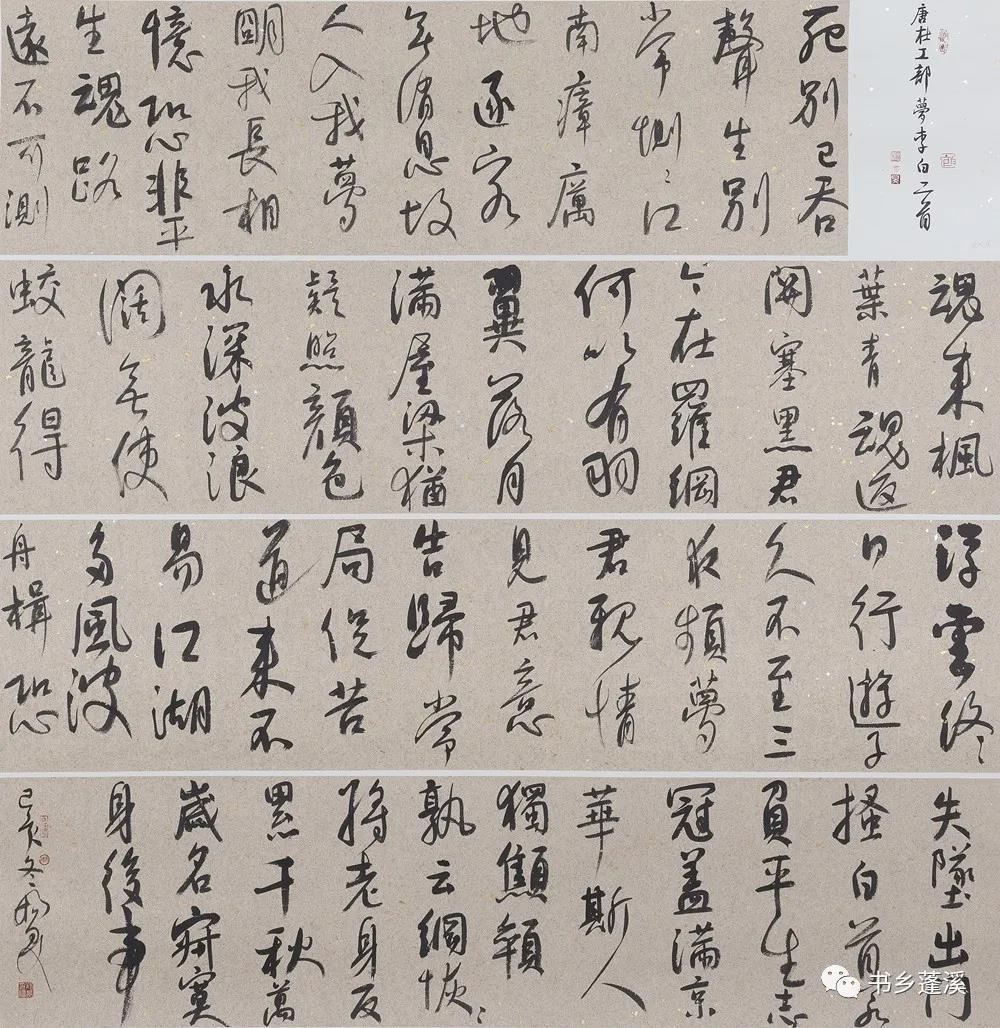 唐杜工部夢李白二首
死別已吞
聲生別
常惻〻江
南瘴厲
地逐客
無消息故
人入我夢
朙我長相
憶恐非平
生魂路
遠不可測
魂来楓
葉青魂返
関塞黑君
今在羅網
何以有羽
翼落月
滿屋梁猶
疑照顏色
水深波浪
闊無使
蛟龍得
浮雲終〻
日行遊子
久不至三
夜頻夢
君親情
見君意
告歸常
局促苦
道来不
易江湖
多風波
舟楫恐
失墜出門
搔白首若
負平生志
冠蓋滿京
華斯人
獨顦顇
孰云網恢〻
將老身反
累千秋萬
歲名寂寞
身後事
己亥冬
书乡蓬溪